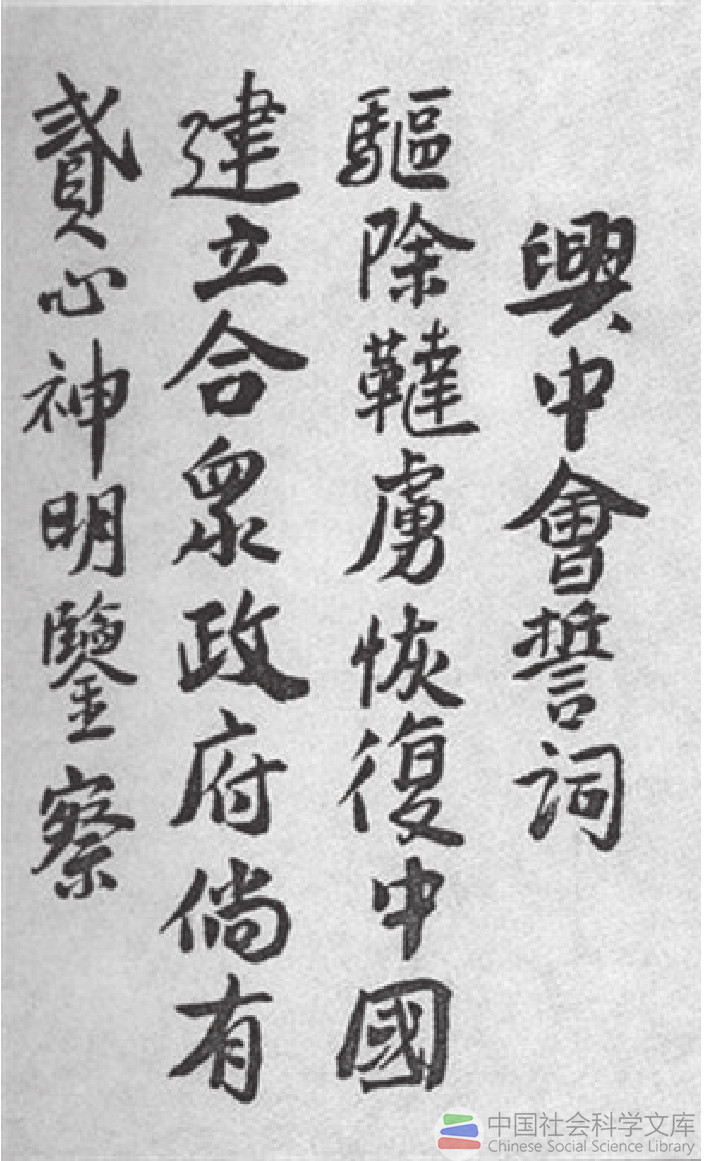 興中會誓詞
驅除韃虜恢復中國
建立合衆政府倘有
貳心神明鑒察
中国社会科学文库
Chinese Social Science Library